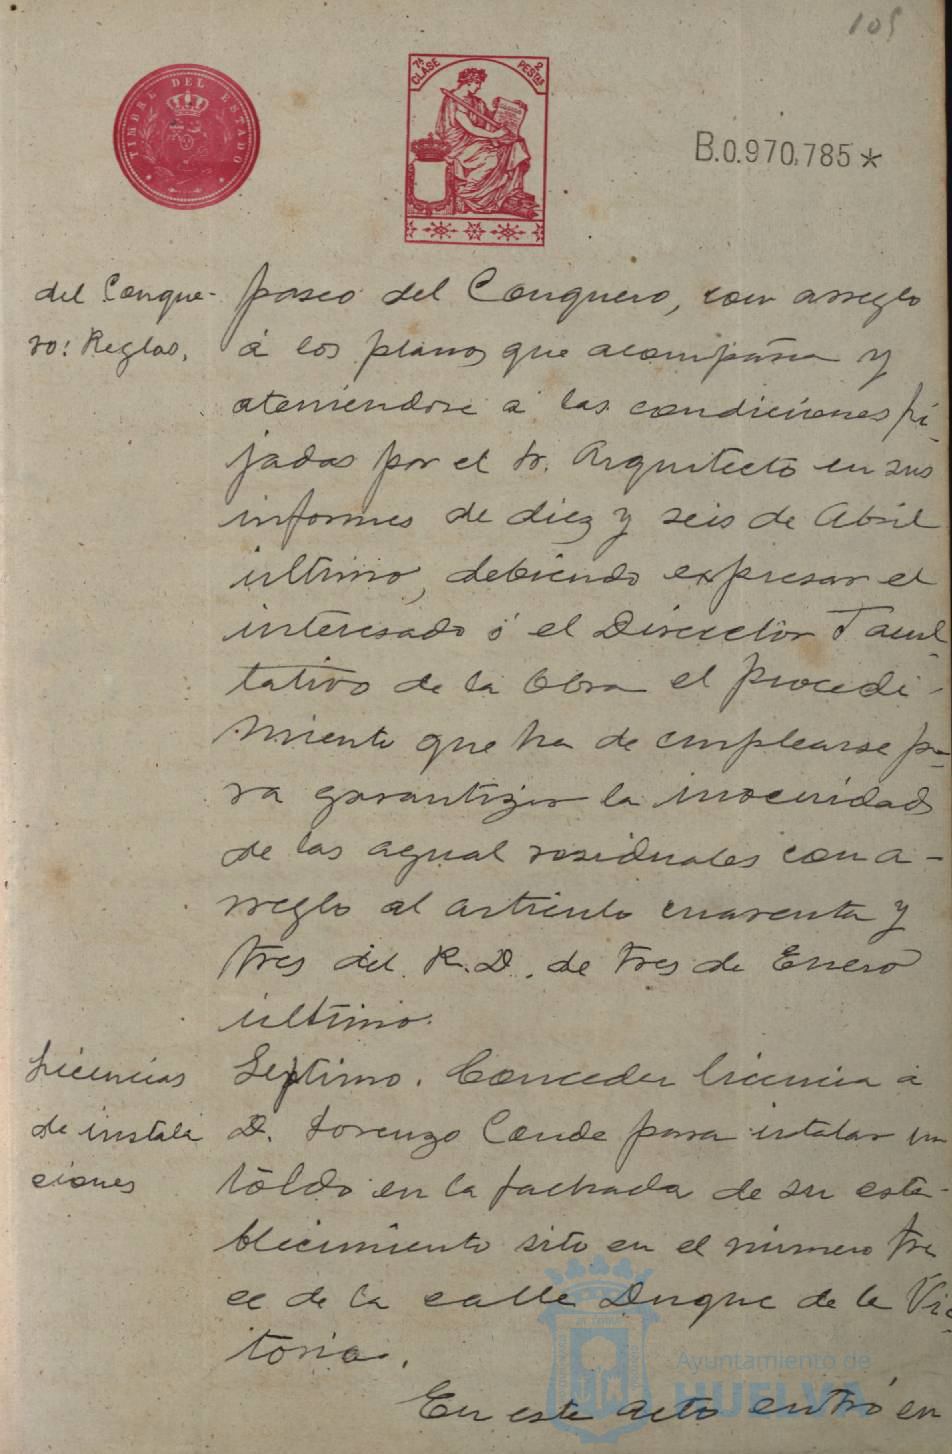 105
TIMBRE DEL ESTADO
7ª CLASE
2 PESETAS
B.0.970.785*
del Conque-
ro: Reglas.
paseo del Conquero, con arreglo
á los planos que acompaña y
ateniendose a las condiciones fi-
jadas por el Sr. Arquitecto en sus
informes de diez y seis de Abril
último, debiendo expresar el
interesado ó el Director Facul-
tativo de la Obra el procedi-
miento que ha de emplearse pa-
ra garantizar la inocuidad
de las agual residuales con a-
rreglo al artículo cuarenta y
tres del R.D. de tres de Enero
último.
Licencias
de instala
ciones
Septimo. Conceder licencia a
D. Lorenzo Conde para istalar un
toldo en la fachada de su esta-
blecimiento sito en el número tre
ce de la calle Duque de la Vic-
toria.
En este acto entró en
Ayuntamiento de
HUELVA